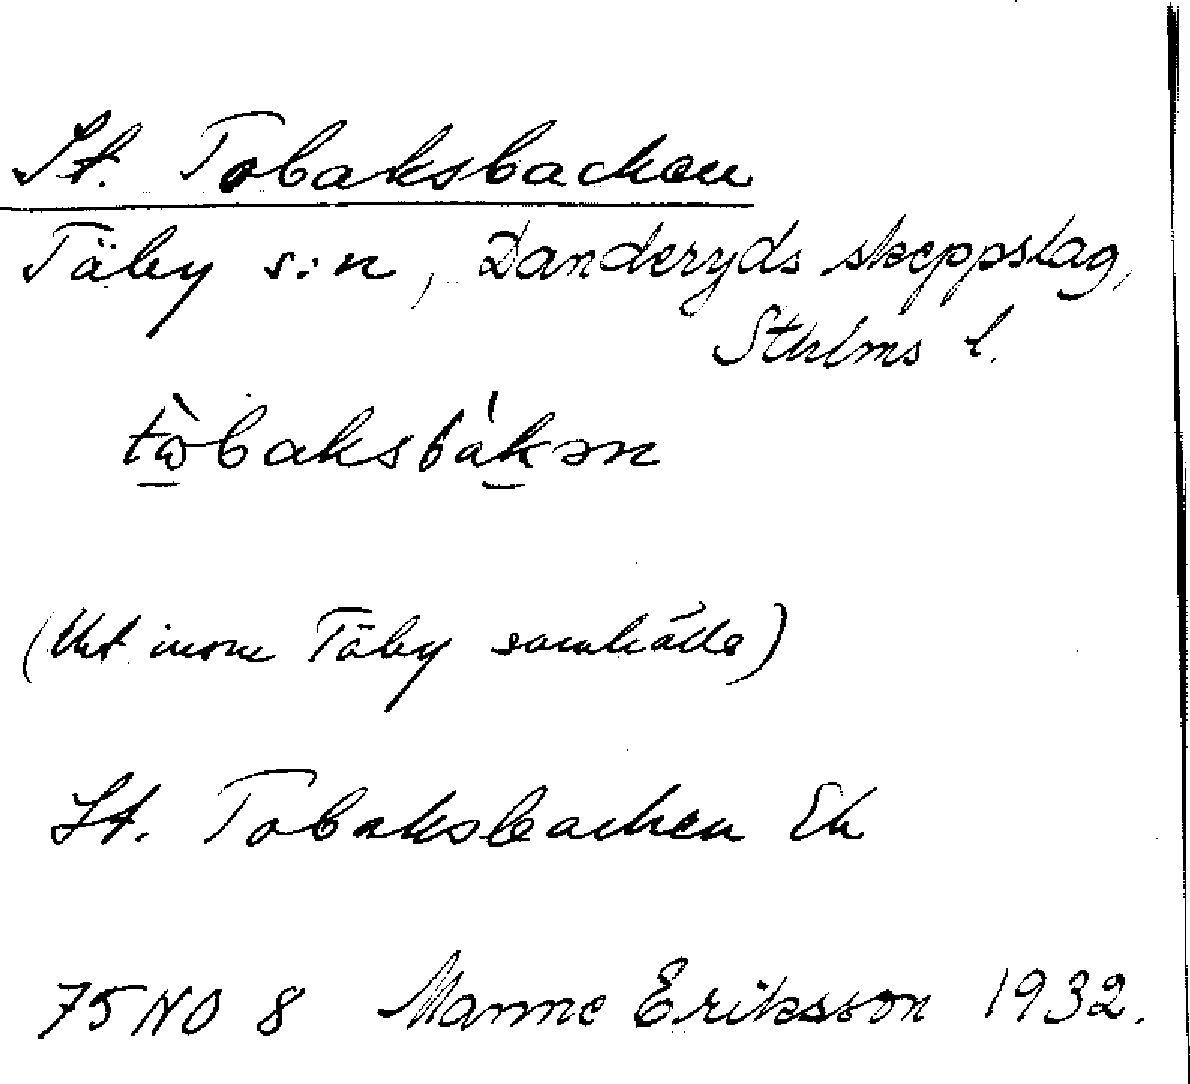 St. Tobaksbacken
Täby s:n, Danderyds skeppslag,
Sthlms l.
tòbaksbákən
(Ut inom Täby samhälle)
St. Tobaksbacken Ek
75 NO 8 Manne Eriksson 1932.